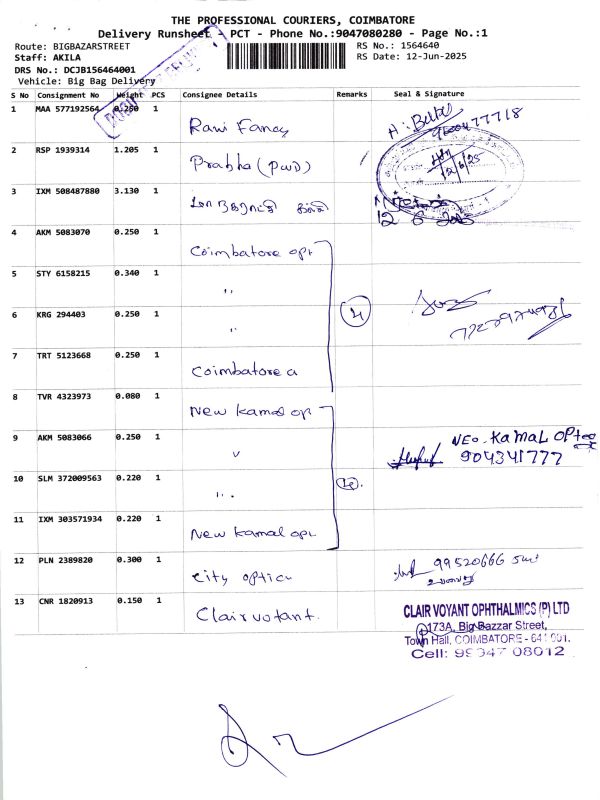 THE PROFESSIONAL COURIERS, COIMBATORE
Delivery Runsheet - PCT - Phone No.:9047080280 - Page No.:1
Route: BIGBAZARSTREET
RS No.: 1564640
Staff: AKILA
RS Date: 12-Jun-2025
DRS No.: DCJB156464001
Vehicle: Big Bag Delivery
S No Consignment No Weight PCS Consignee Details Remarks Seal & Signature
1 MAA 577192564 0.260 1
2 RSP 1939314 1.205 1 Prabha (PWD)
12/6/25
3 IXM 508487880 3.130 1
12 6 2025
4 AKM 5083070 0.250 1 Coimbatore opt
5 STY 6158215 0.340 1 ''
6 KRG 294403 0.250 1 '' 4
7 TRT 5123668 0.250 1 Coimbatore
8 TVR 4323973 0.080 1 New Kamal op
9 AKM 5083066 0.250 1 NEO. KAMAL
904341777
10 SLM 372009563 0.220 1 '' 4
11 IXM 303571934 0.220 1 New Kamal opt
12 PLN 2389820 0.300 1 City optica 99520666
13 CNR 1820913 0.150 1 Clairvotant.
CLAIR VOYANT OPHTHALMICS (P) LTD
173A, Big Bazzar Street,
Town Hall, COIMBATORE - 641 001.
Cell: 99947 08012